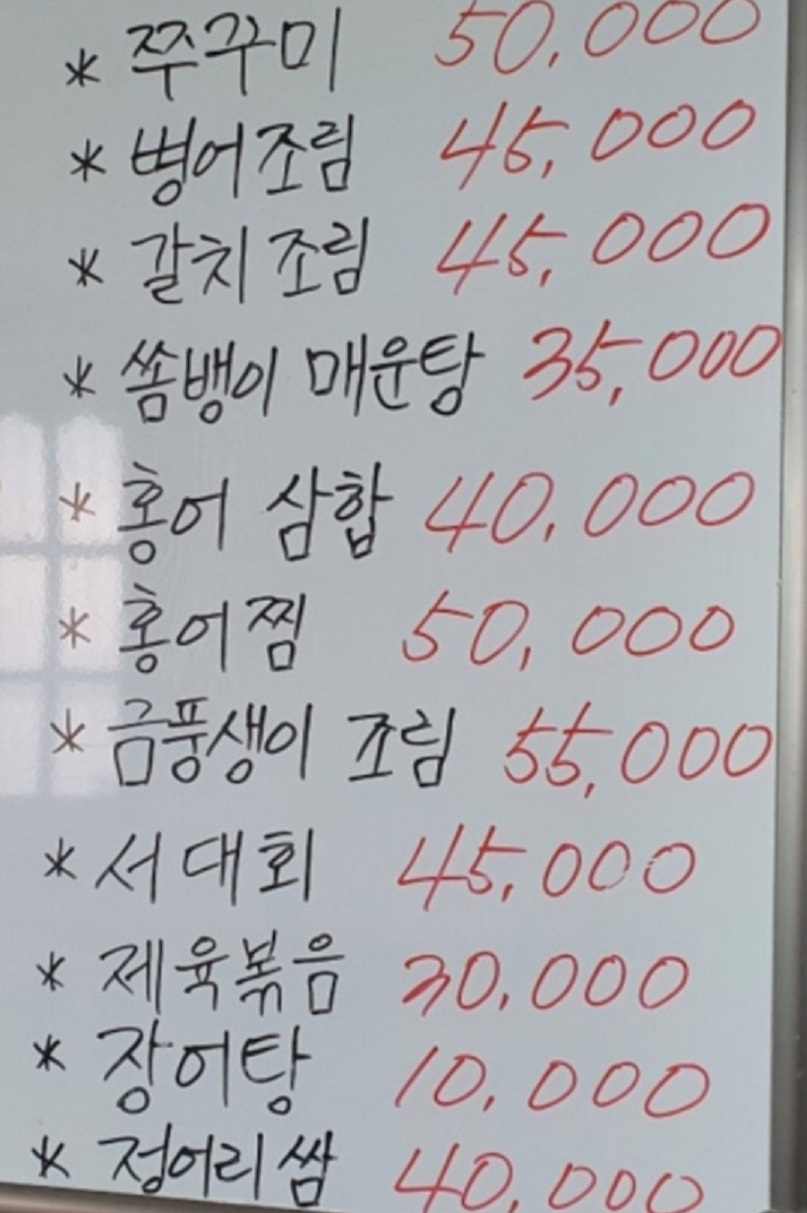 * 쭈꾸미 50,000
* 병어조림 45,000
* 갈치조림 45,000
* 쏨뱅이 매운탕 35,000
* 홍어 삼합 40,000
* 홍어찜 50,000
* 금풍생이 조림 55,000
* 서대회 45,000
* 제육볶음 30,000
* 장어탕 10,000
* 정어리쌈 40,000